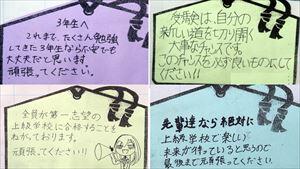 3年生へ
これまで、たくさん勉強
してきた3年生なら何でも
大丈夫だと思います。
頑張ってください。
受験は、自分の
新しい道を切り開く
大事なチャンスです。
このチャンスを必ず良いものにして
ください!!
全員が第一志望の
上級学校に合格することを
ねがっております。
頑張ってください!!
先輩達なら絶対に
上級学校で楽しい
未来が待っていると思うので
最後まで頑張ってください!